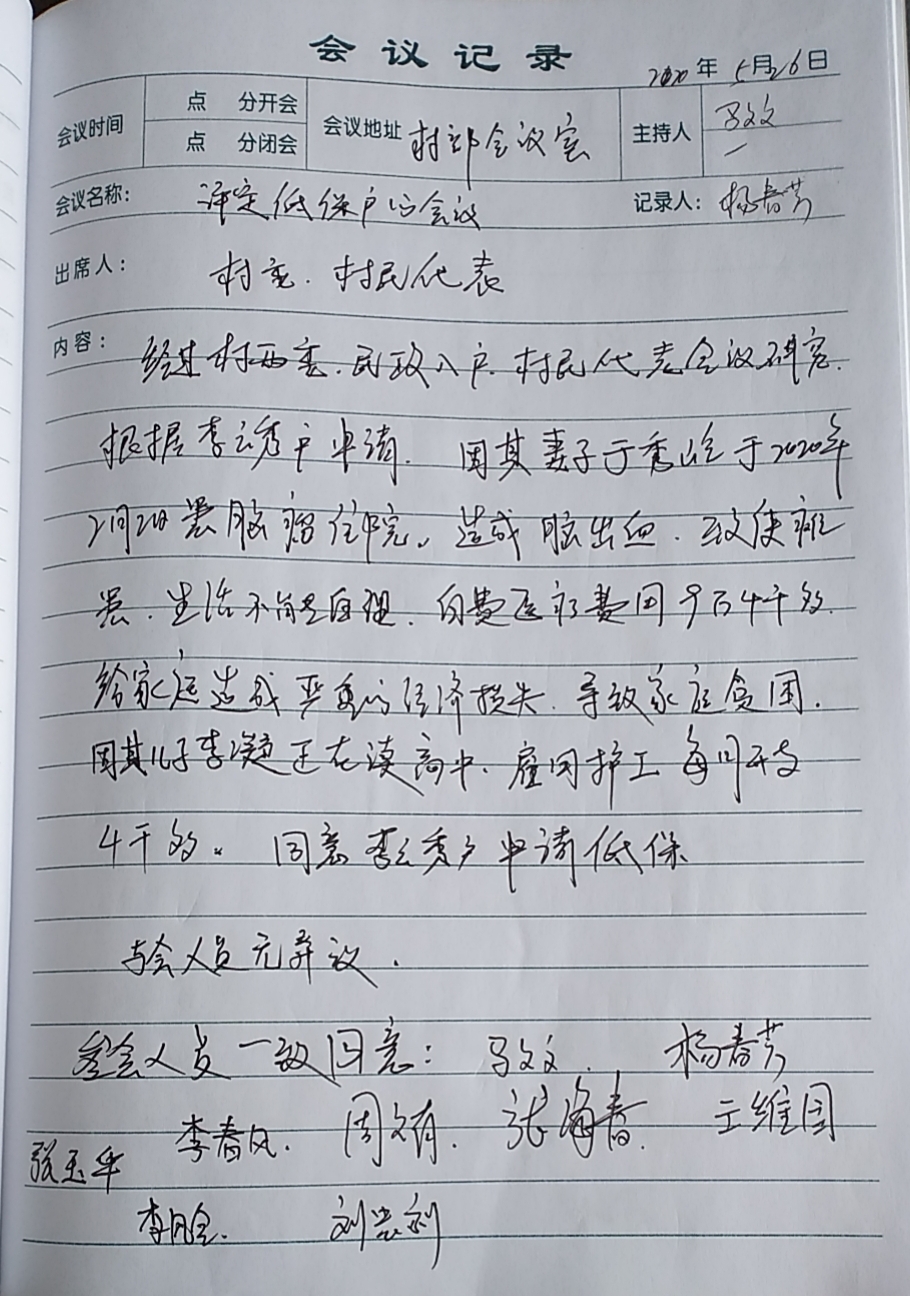 会议记录
2020年5月26日
会议时间 点 分开会 会议地址 村部会议室 主持人 马文文
点 分闭会
会议名称: 评定低保户的会议 记录人: 杨春芳
出席人: 村委、村民代表
内容: 经过村两委、民政入户、村民代表会议研究,
根据李云秀户申请. 因其妻子于秀 于2020年
2月2日患脑瘤住院。造成脑出血、致使瘫
患、生活不能自理、自费医疗费用 4千多.
给家庭造成严重的经济损失、导致家庭贫困.
因其儿子李 正在读高中、雇用护工每月开支
4千多。同意李云秀户申请低保
与会人员无异议.
参会人员一致同意: 马文文. 杨春芳
李春风. 周文有. 张海春. 王维国
张玉华
李月全. 刘 利